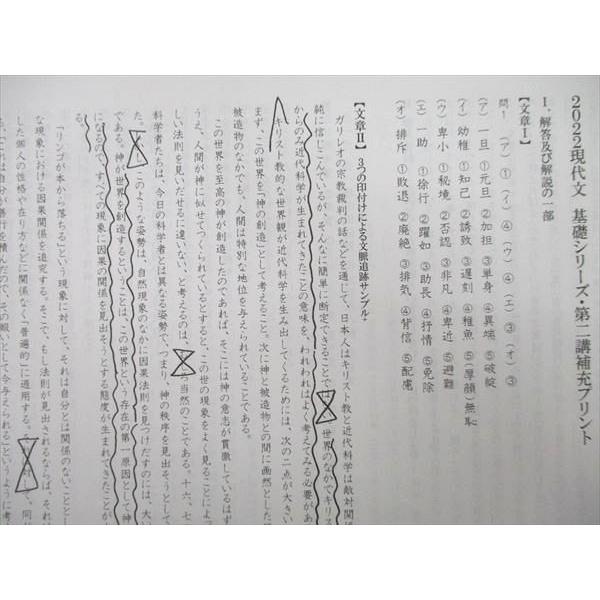 2022現代文 基礎シリーズ・第二講補充プリント
Ⅰ.解答及び解説の一部
【文章Ⅰ】
問1 (ア) ① (イ) ④ (ウ) ④ (エ) ③ (オ) ③
(ア) 一旦 ①元旦 ②加担 ③単身 ④異端 ⑤破綻
(イ) 幼稚 ①知己 ②誘致 ③遅刻 ④稚魚 ⑤(厚顔)無恥
(ウ) 卑小 ①秘境 ②否認 ③非凡 ④卑近 ⑤避難
(エ) 一助 ①徐行 ②躍如 ③助長 ④抒情 ⑤免除
(オ) 排斥 ①敗退 ②廃絶 ③排気 ④背信 ⑤配慮
【文章Ⅱ】 3つの印付けによる文脈追跡サンプル
ガリレオの宗教裁判の話などを通じて、日本人はキリスト教と近代科学は敵対関係
純に信じこんでいるが、そんなに簡単に断定できることで 世界のなかでキリス
からのみ近代科学が生まれてきたことの意味を、われわれはよく考えてみる必要があ
キリスト教的な世界観が近代科学を生み出してくるためには、次の二点が大きい
まず、この世界を「神の創造」として考えること。次に神と被造物との間に画然とした
被造物のなかでも、人間は特別な地位を与えられていることである。
この世界を至高の神が創造したのであれば、そこには神の意志が貫徹しているはず
うえ、人間が神に似せてつくられているとすると、この世の現象をよく見ることによ
しい法則を見いだせるに違いない、と考えるのは、 当然のことである。十六、七
科学者たちは、今日の科学者とは異なる姿勢で、つまり、神の秩序を見出そうとして
た。 このような姿勢は、自然現象のなかに因果法則を見つけだすのには、大い
である。神が世界を創造するということは、この世界という存在の第一原因として神
になるので、すべての現象に因果の関係を見出そうとする態度が生まれてきたことが
る。
「リンゴが木から落ちる」という現象に対して、それは自分とは関係のないこととし
な現象における因果関係を追究する。そこで、もし法則が見出されるならば、それは
した個人の性格や在り方などに関係なく「普遍的」に通用する。 同
、「これは自分が善行を積んだので、その願いとして今与えられる」というように考